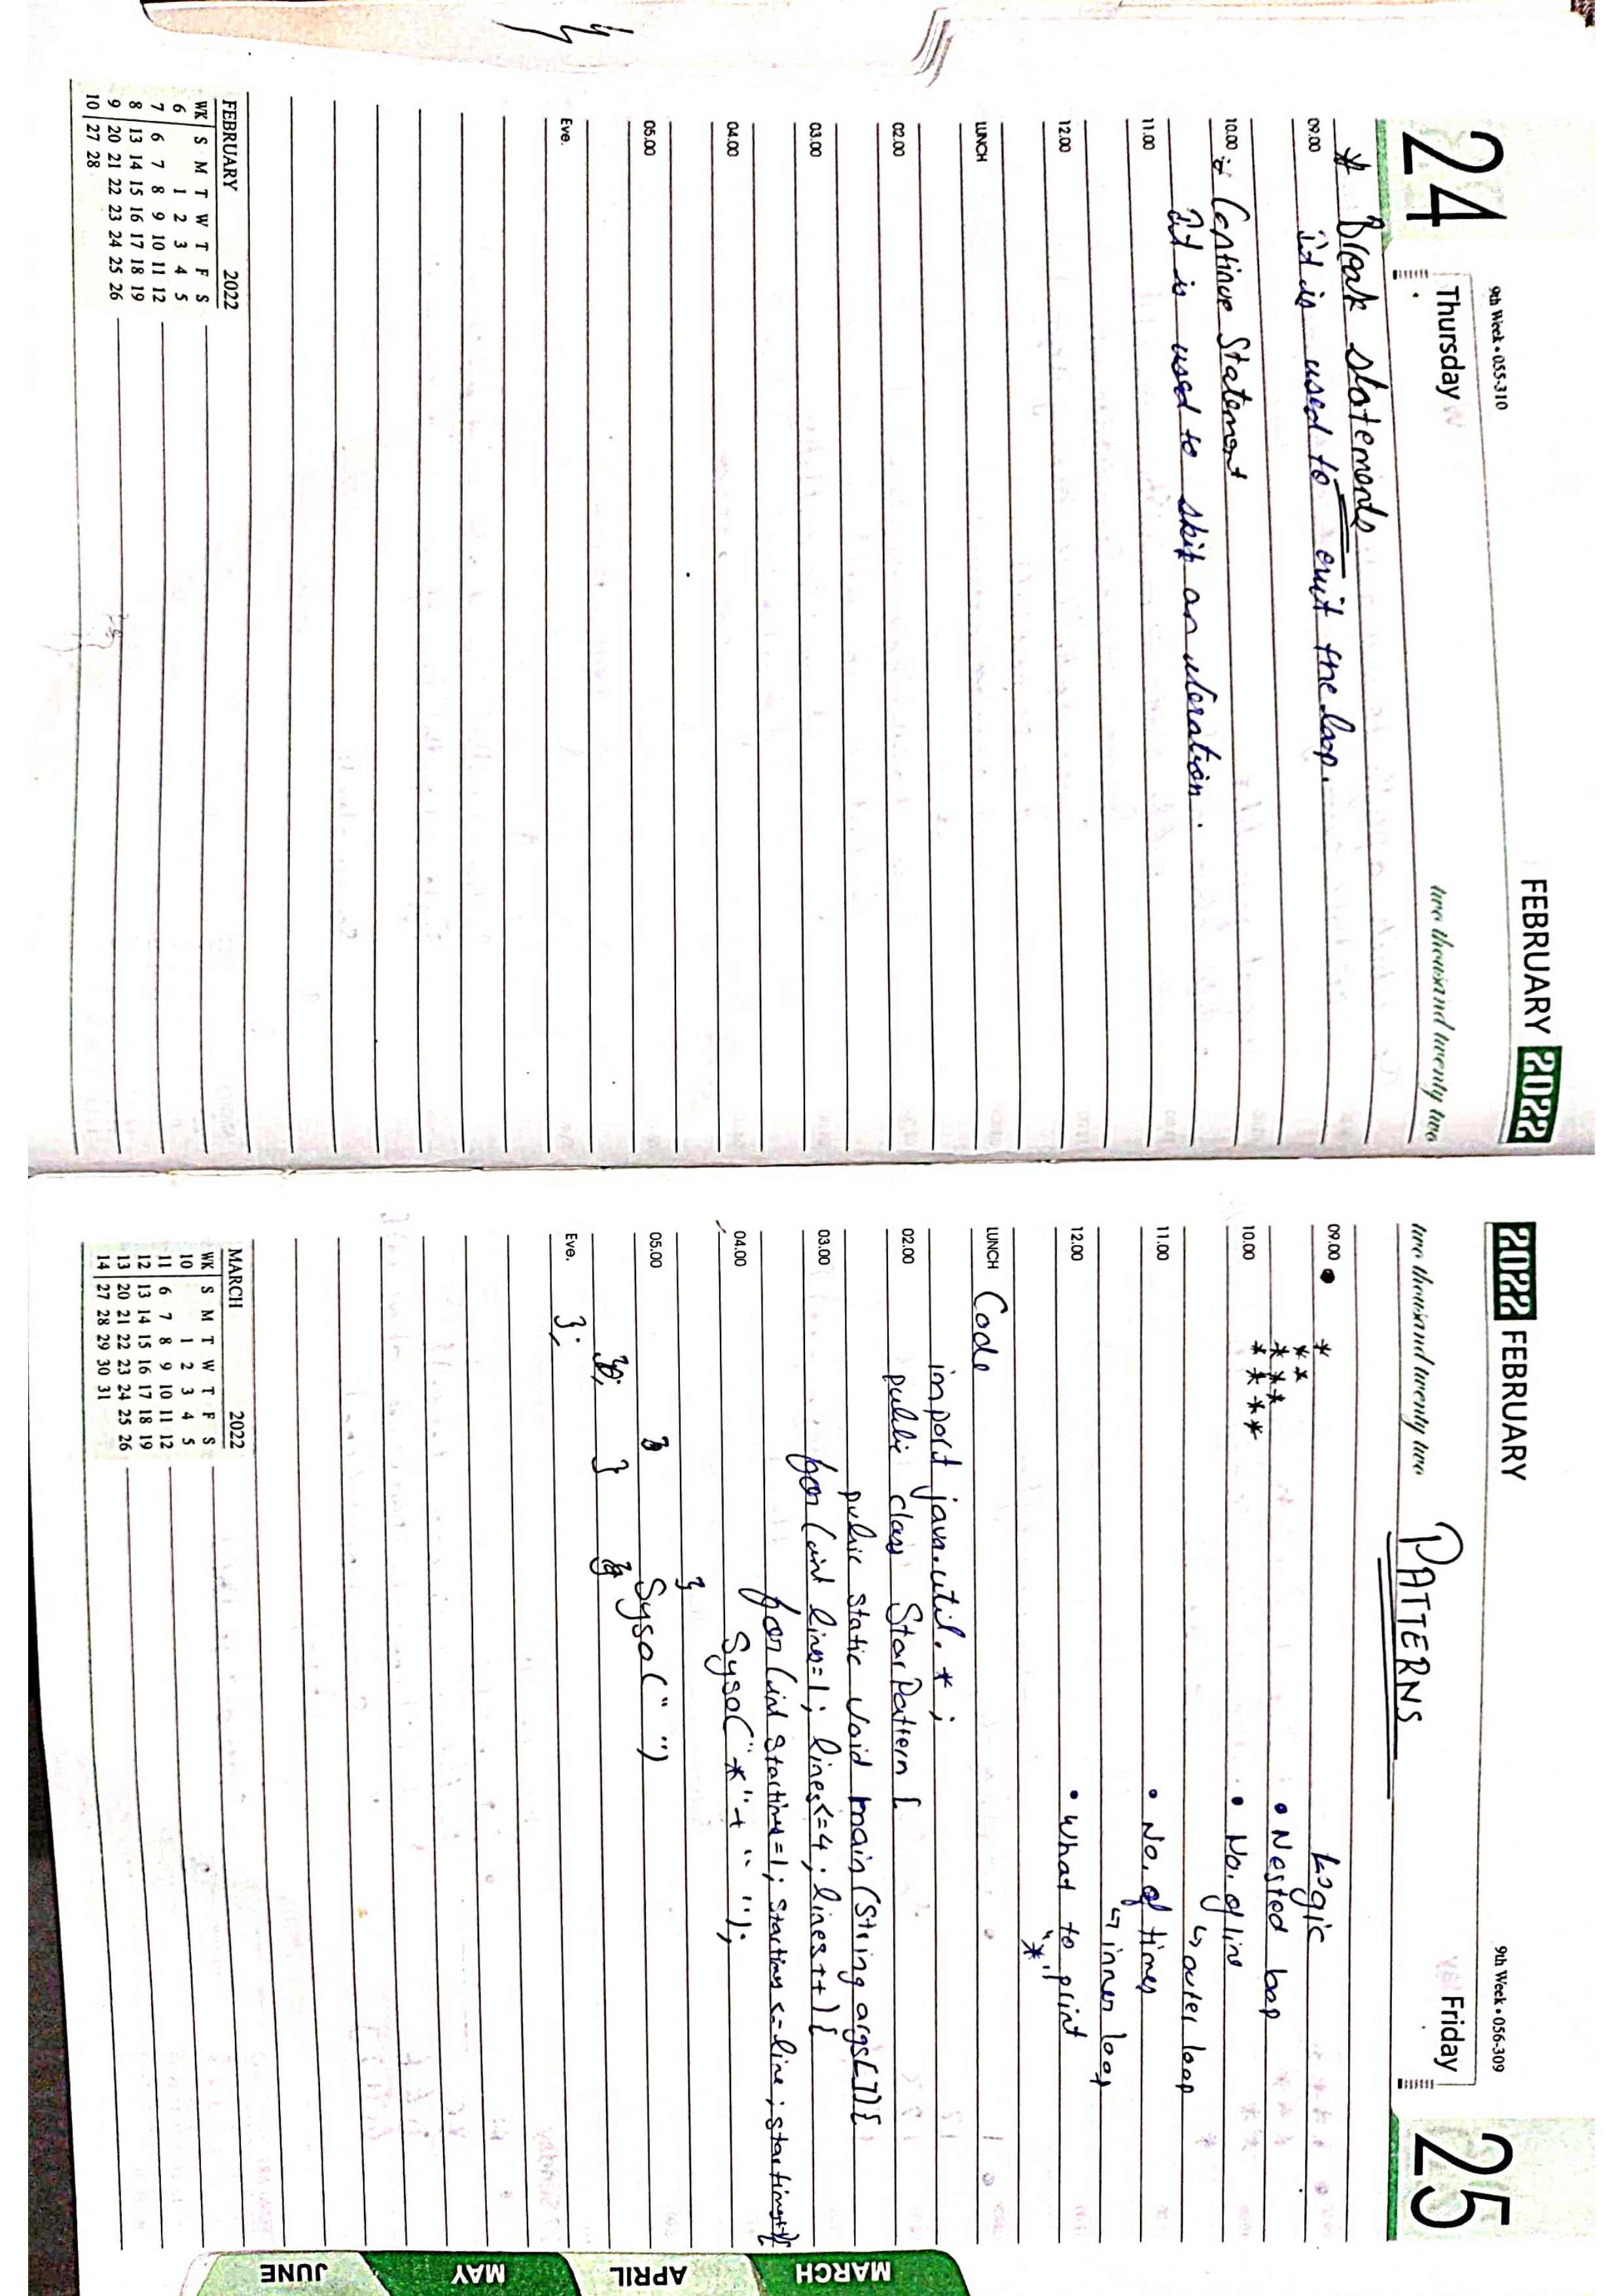 FEBRUARY 2022
24
9th Week • 055-310
Thursday
two thousand twenty two
* Break statements
09.00 It is used to exit the loop.
10.00 Continue Statement
It is used to skip an iteration.
11.00
12.00
LUNCH
02.00
03.00
04.00
05.00
Eve.
FEBRUARY 2022
WK S M T W T F S
6 1 2 3 4 5
7 6 7 8 9 10 11 12
8 13 14 15 16 17 18 19
9 20 21 22 23 24 25 26
10 27 28
2022 FEBRUARY
9th Week • 056-309
25
Friday
two thousand twenty two
PATTERNS
09.00 *
* *
* * *
10.00 * * * *
Logic
• Nested loop
• No. of line
↳ outer loop
11.00
• No. of times
↳ inner loop
12.00
• What to print
"*"
LUNCH Code
import java.util.*;
02.00 public class StarPattern {
public static void main (String args[]){
03.00 for (int line=1; lines<=4; lines++){
for (int startimes=1; startimes <=line; startimes++){
04.00 Syso("*"+" ");
}
05.00 } Syso(" ")
}
Eve. };
MARCH 2022
WK S M T W T F S
10 1 2 3 4 5
11 6 7 8 9 10 11 12
12 13 14 15 16 17 18 19
13 20 21 22 23 24 25 26
14 27 28 29 30 31
MARCH
APRIL
MAY
JUNE